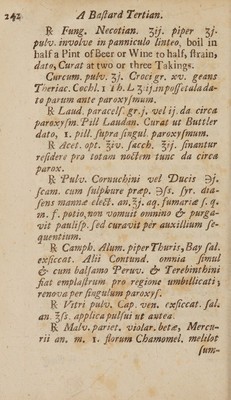 242 A Bastard Tertian.
℞ Fung. Necotian. ʒij. piper ʒj.
pulv. involve in panniculo linteo, boil in
half a Pint of Beer or Wine to half, strain,
dato, Curat at two or three Takings.
Curcum. pulv. ʒj. Croci gr. xv. geans
Theriac. Cochl. 1 Th. L ʒij. in posset alada-
to parum ante paroxysmum.
℞ Laud. paracels. gr. j. vel ij. da circa
paroxysm. Pill Laudan. Curat ut Buttler
dato, 1. pill. supra singul. paroxysmum.
℞ Acet. opt. ℥iv. sacch. ℥ij. sinantur
residere pro totam noctem tunc da circa
parox.
℞ Pulv. Cornuchini vel Ducis ℈j.
scam. cum sulphure præp. ℈ſs. syr. dia-
sens mannæ elect. an. ℥j. aq. fumariæ s. q.
m. f. potio, non vomuit omnino & purga-
vit paulisp. sed curavit per auxillium se-
quentium.
℞ Camph. Alum. piper Thuris, Bay sal.
exsiccat. Alii Contund. omnia simul
& cum balsamo Peruv. & Terebinthini
fiat emplastrum pro regione umbillicati;
renova per singulum paroxys.
℞ Vitri pulv. Cap. ven. exsiccat. sal.
an. ℥ſs. applica pulsui ut antea.
℞ Malv. pariet. violar. betæ, Mercu-
rii an. m. 1. florum Chamomel. melilot
sum-